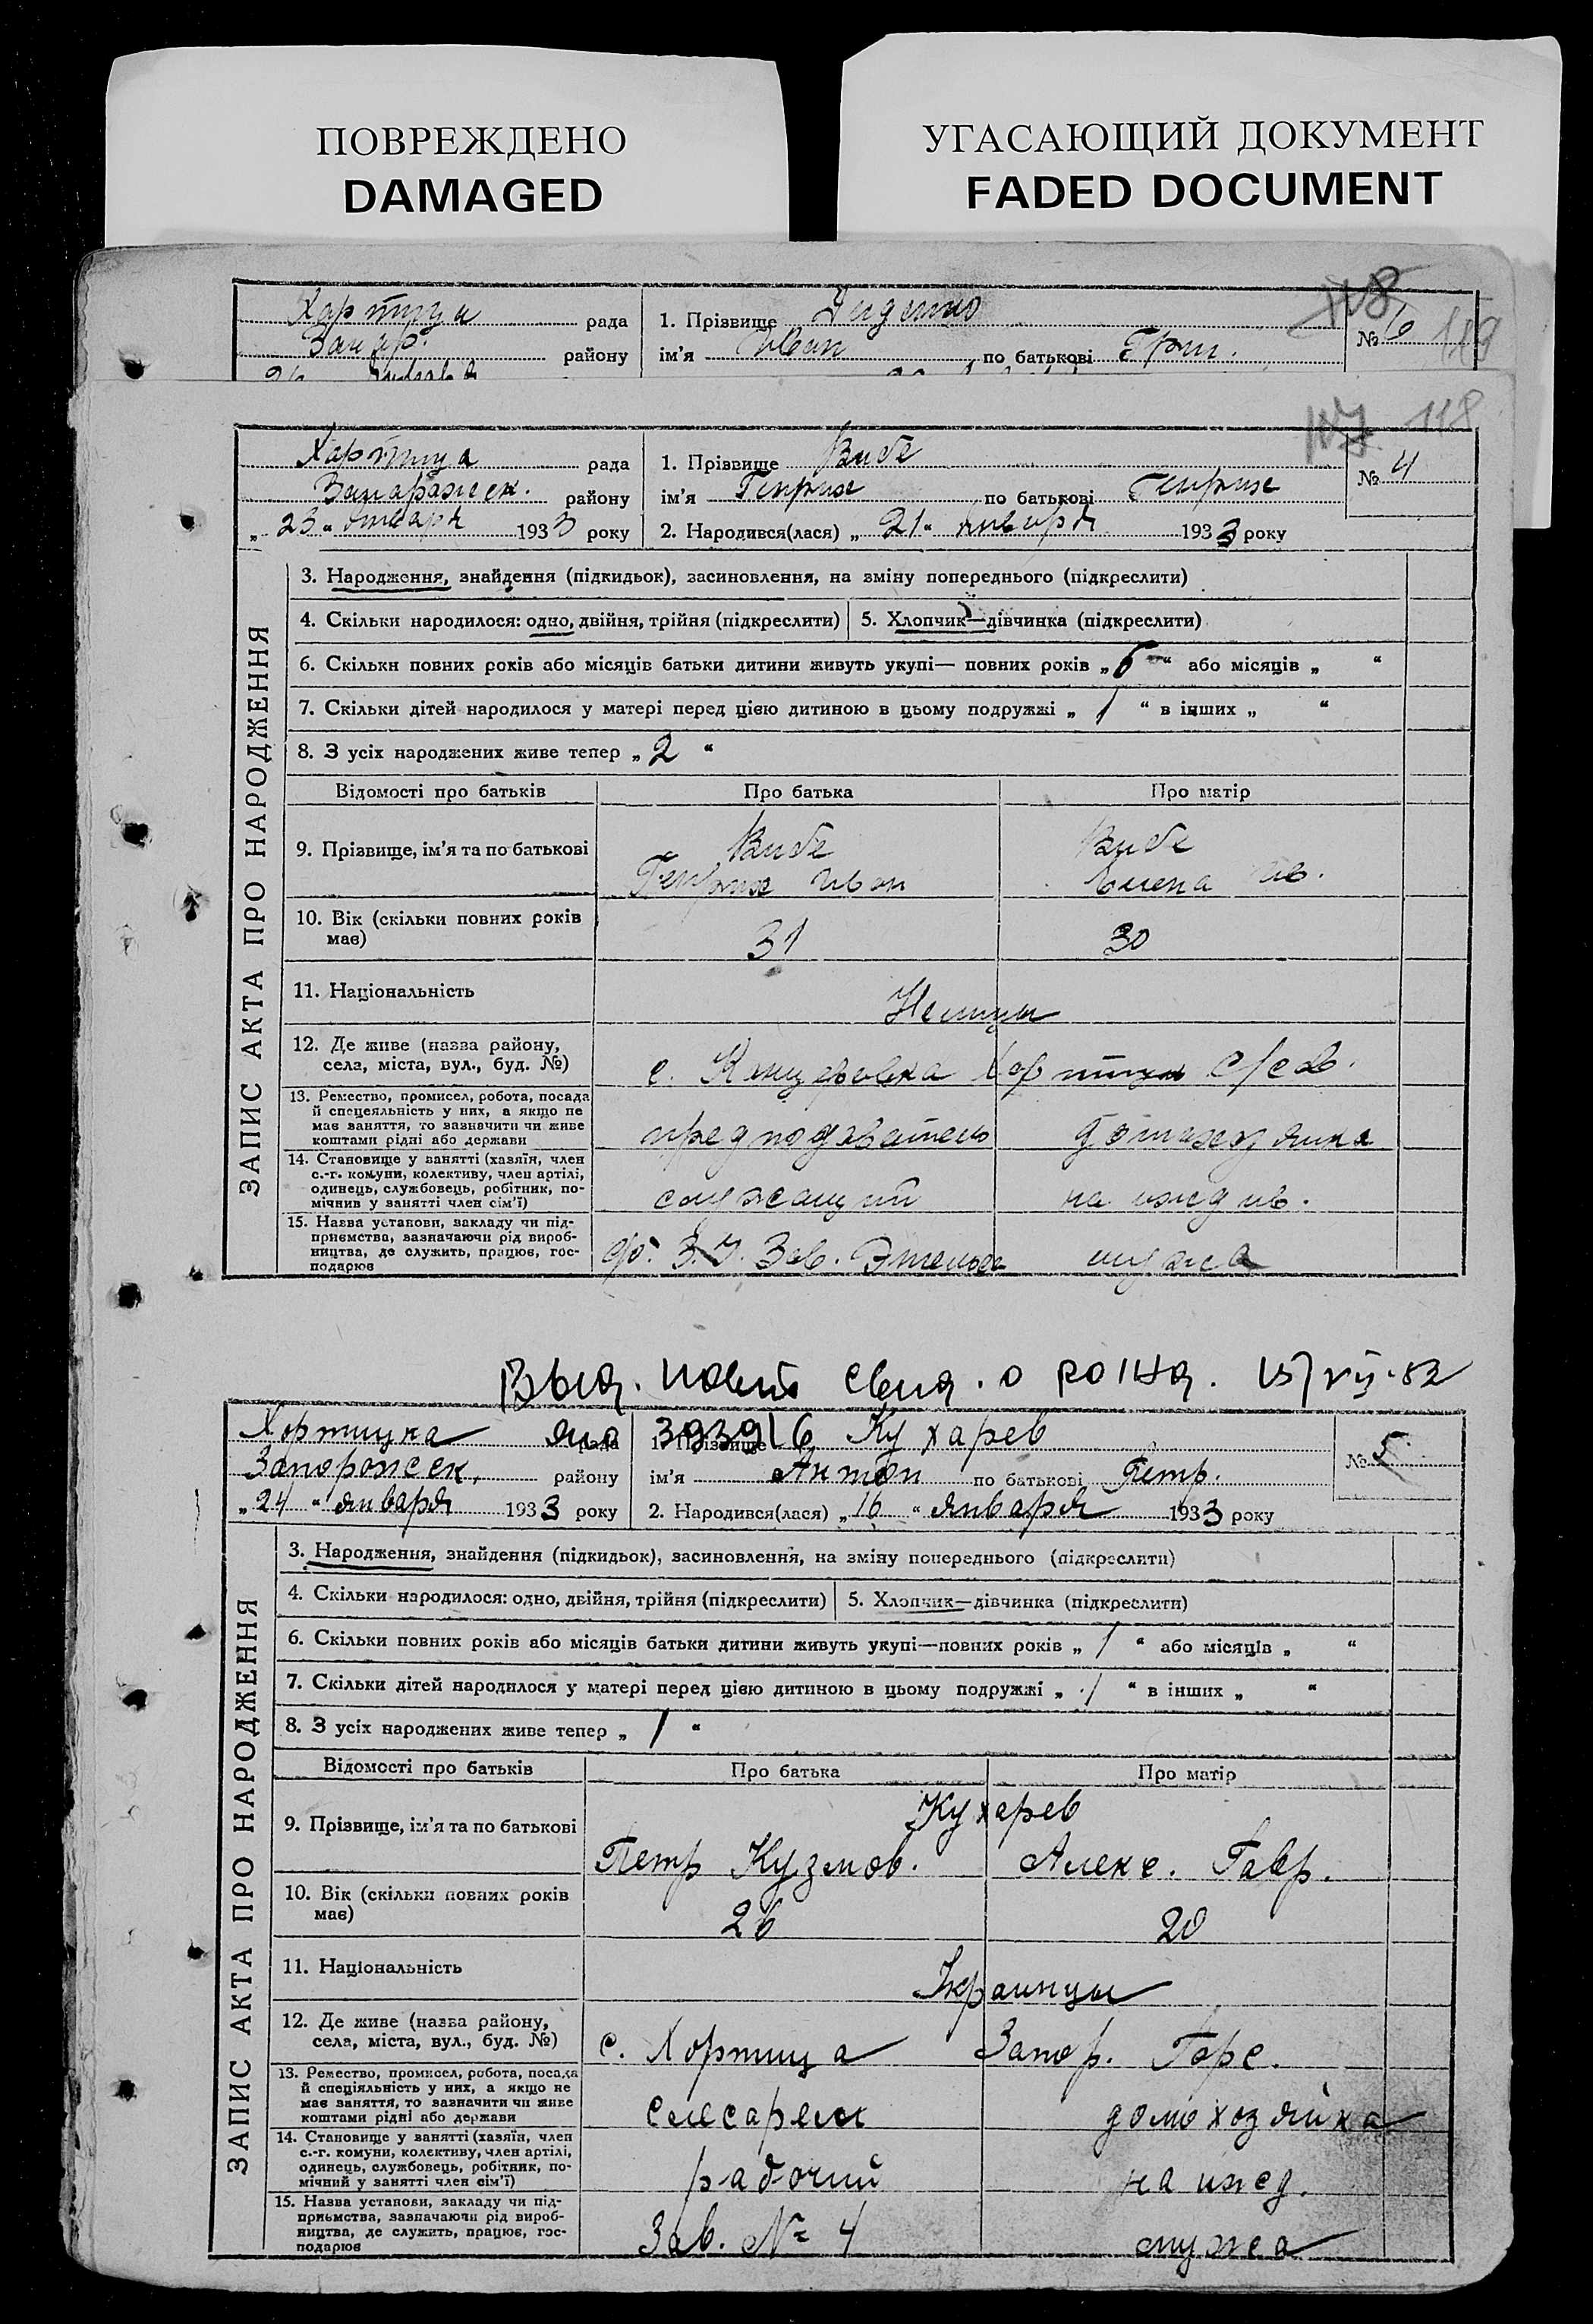 ПОВРЕЖДЕНО
DAMAGED
УГАСАЮЩИЙ ДОКУМЕНТ
FADED DOCUMENT
118
119
Хортица рада
Запор. району
1. Прізвище Диденко
ім'я Иван по батькові Григ.
№ 6
117 118
Хортица рада
Запорожск. району
„ 23 " января 1933 року
1. Прізвище Вибе
ім'я Генрих по батькові Генрих
2. Народився(лася) „ 21 " января 1933 року
№ 4
ЗАПИС АКТА ПРО НАРОДЖЕННЯ
3. Народження, знайдення (підкидьок), засиновлення, на зміну попереднього (підкреслити)
4. Скільки народилося: одно, двійня, трійня (підкреслити)
5. Хлопчик—дівчинка (підкреслити)
6. Скільки повних років або місяців батьки дитини живуть укупі— повних років „ 6 " або місяців „ "
7. Скільки дітей народилося у матері перед цією дитиною в цьому подружжі „ 1 " в інших „ "
8. З усіх народжених живе тепер „ 2 "
Відомості про батьків
Про батька
Про матір
9. Прізвище, ім'я та по батькові
Вибе
Генрих Иван
Вибе
Елена
10. Вік (скільки повних років має)
31
30
11. Національність
Немцы
12. Де живе (назва району,
села, міста, вул., буд. №)
с. Канцеровка Хортицк с/сов.
13. Ремество, промисел, робота, посада
й спецеяльність у них, а якщо не
має заняття, то зазначити чи живе
коштами рідні або держави
преподаватель
домохозяйка
14. Становище у занятті (хазяїн, член
с.-г. комуни, колективу, член артілі,
одинець, службовець, робітник, по-
мічник у занятті член сім'ї)
служащий
на иждив.
15. Назва установи, закладу чи під-
приємства, зазначаючи рід вироб-
ництва, де служить, працює, гос-
подарює
Зав.
мужа
Выд. повт свид. о рожд.
393916
Хортицка рада
Запорожск. району
„ 24 " января 1933 року
1. Прізвище Кухарев
ім'я Антон по батькові Петр.
2. Народився(лася) „ 16 " января 1933 року
№ 5
ЗАПИС АКТА ПРО НАРОДЖЕННЯ
3. Народження, знайдення (підкидьок), засиновлення, на зміну попереднього (підкреслити)
4. Скільки народилося: одно, двійня, трійня (підкреслити)
5. Хлопчик—дівчинка (підкреслити)
6. Скільки повних років або місяців батьки дитини живуть укупі—повних років „ 1 " або місяців „ "
7. Скільки дітей народилося у матері перед цією дитиною в цьому подружжі „ 1 " в інших „ "
8. З усіх народжених живе тепер „ 1 "
Відомості про батьків
Про батька
Про матір
9. Прізвище, ім'я та по батькові
Кухарев
Петр Кузмов.
Алекс. Гавр.
10. Вік (скільки повних років має)
26
20
11. Національність
Украинцы
12. Де живе (назва району,
села, міста, вул., буд. №)
с. Хортица Запор. Горс.
13. Ремество, промисел, робота, посада
й спеціяльність у них, а якщо не
має заняття, то зазначити чи живе
коштами рідні або держави
слесарем
домохозяйка
14. Становище у занятті (хазяїн, член
с.-г. комуни, колективу, член артілі,
одинець, службовець, робітник, по-
мічний у занятті член сім'ї)
рабочий
на ижд.
15. Назва установи, закладу чи під-
приємства, зазначаючи рід вироб-
ництва, де служить, працює, гос-
подарює
Зав. № 4
мужа